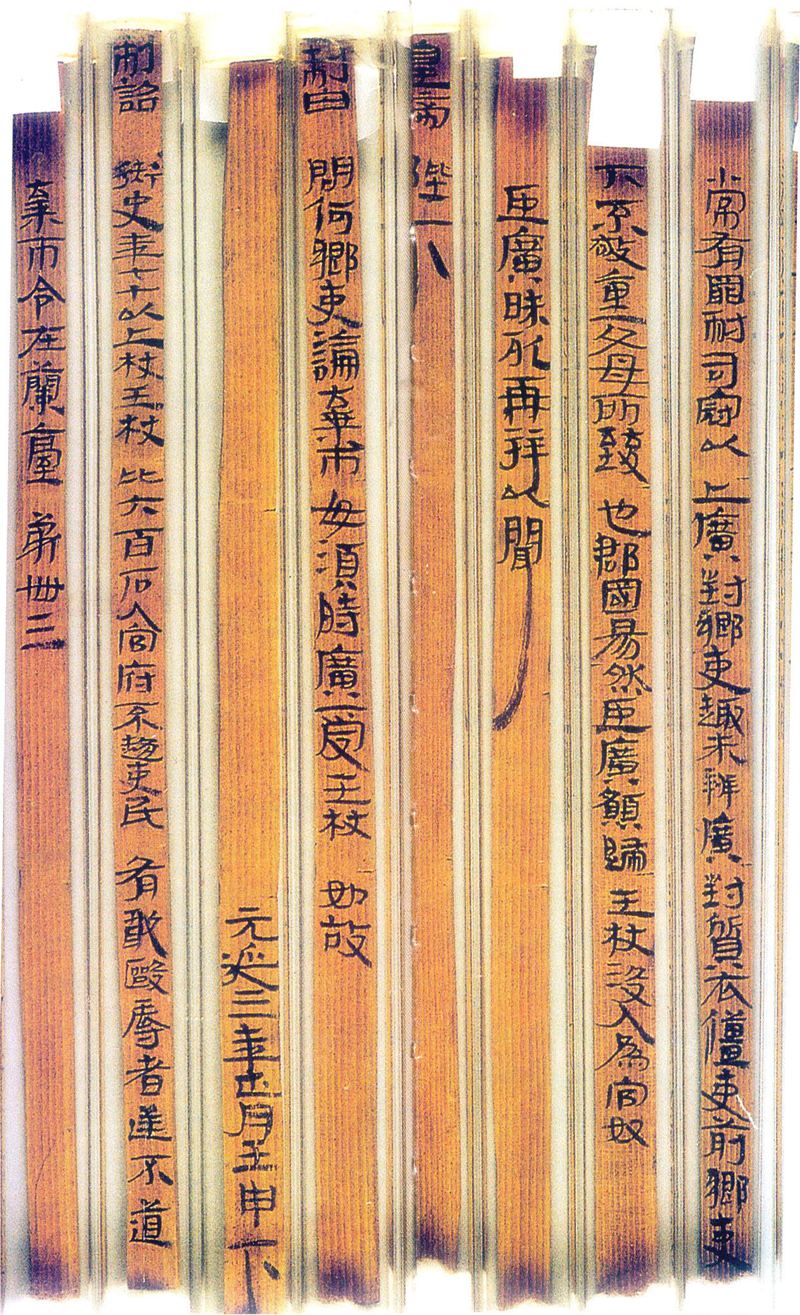 小常有罪耐司寇以上廣對鄉吏趣未辨廣對質衣僵吏前鄉吏
下不敬重父母所致也郡國易然臣廣願歸王杖沒入為官奴
臣廣昧死再拜以聞
皇帝陛下
制曰問何鄉吏論棄市毋須時廣受王杖如故
元延三年正月壬申下
制詔御史年七十以上杖王杖比六百石入官府不趨吏民有敢毆辱者逆不道
棄市令在蘭臺第卌三